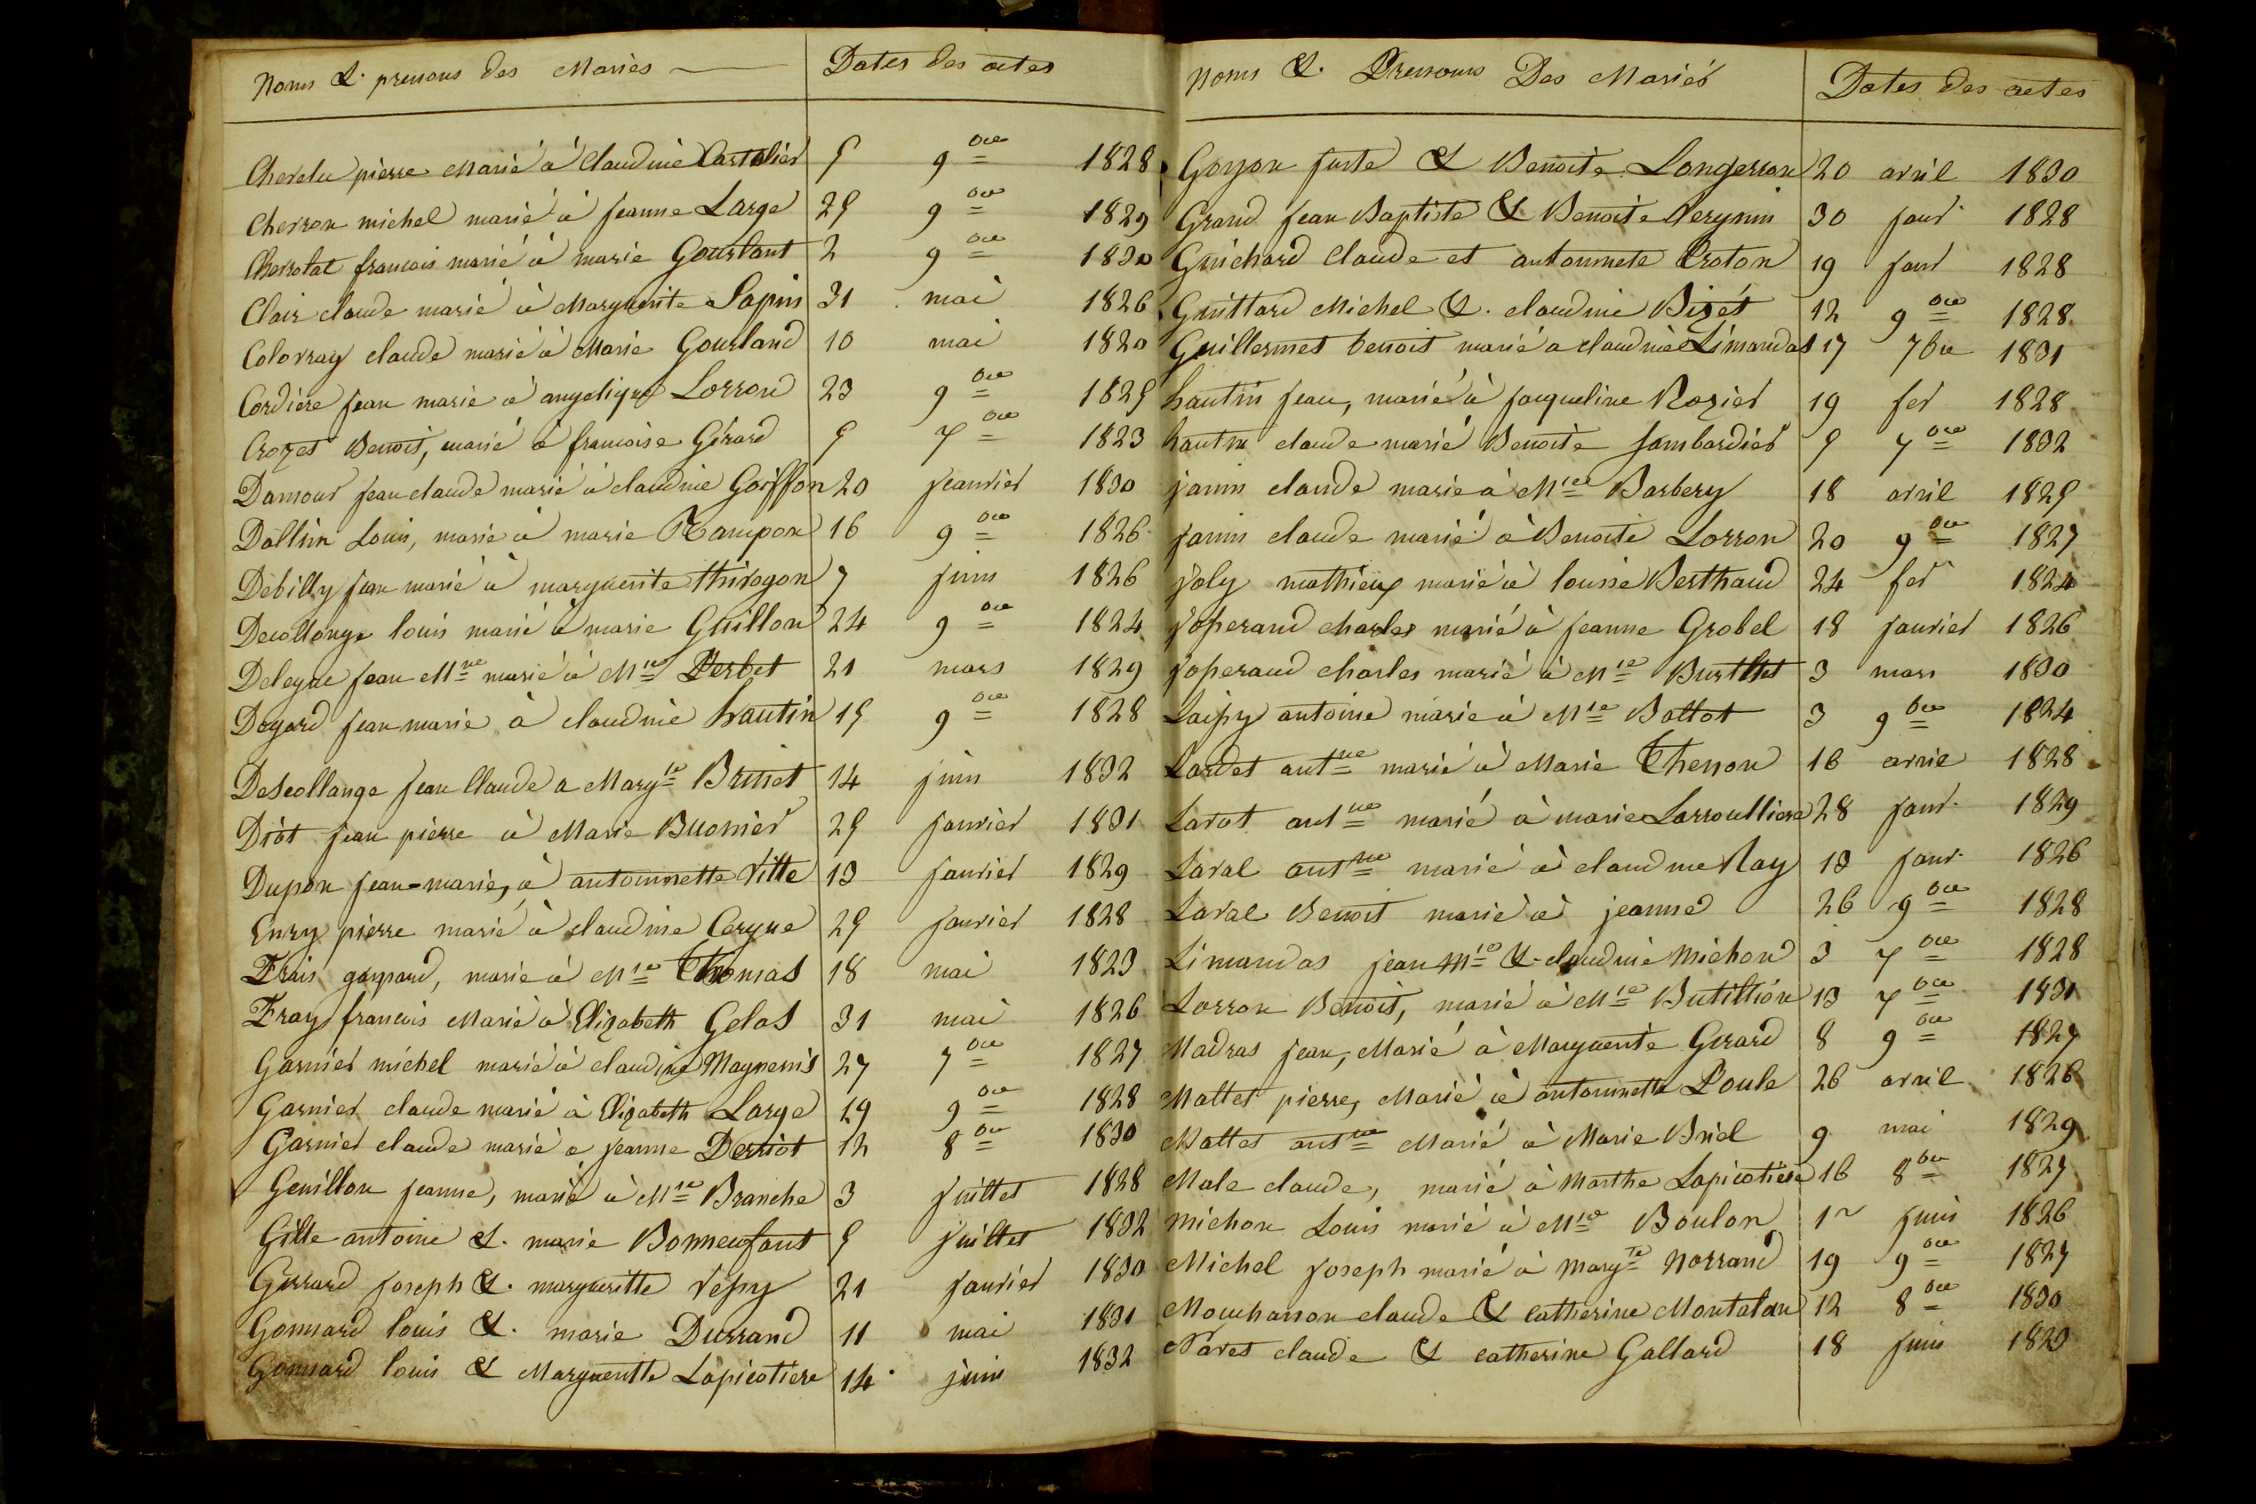 Noms & prenons des Mariés
Dates des actes
Cherelu pierre Marié à Claudine Cartelier 5 9bre 1828
Cherron michel marié à jeanne Large 25 9bre 1829
Cherrotat francois marié à marie Gourlant 2 9bre 1830
Clair claude marié à Marguerite Sapin 31 mai 1826
Colovray claude marié à Marie Gourland 10 mai 1820
Cordiere jean marie à angelique Lorron 23 9bre 1825
Crozet Benoit, marié à francoise Gérard 5 7bre 1823
Damour jean claude marié à claudine Goiffon 20 jeanvier 1830
Dallin Louis, marié à marie Rampon 16 9bre 1826
Debilly jean marié à marguerite thivogon 7 juin 1826
Decollonge louis marié à marie Guillon 24 9bre 1824
Deleyne jean Mrie marié à Mrie Perbet 21 mars 1829
Degard jean marie à claudine hautin 15 9bre 1828
Descollange jean Claude a Margte Brunet 14 juin 1832
Diot jean pierre à Marie Buonier 25 janvier 1831
Dupon jean-marie, à antoinnette Vitte 13 janvier 1829
Enry pierre marié à claudine Ceryne 25 janvier 1828
Frais gaspard, marié à Mrie Thomas 18 mai 1823
Fray francois Marié à Elizabeth Gelas 31 mai 1826
Garnier michel marié à claudine Magnenis 27 7bre 1827
Garnier claude marié à Elizabeth Large 19 9bre 1828
Garnier claude marié a jeanne Derriot 12 8bre 1830
Genillon jeanne, marié à Mrie Branche 3 juillet 1828
Gille antoine & marie Bonnenfant 5 juillet 1832
Gerrard joseph & margueritte Vepy 21 janvier 1830
Gonnard louis & marie Durrand 11 mai 1831
Gonnard louis & Margueritte Lapicotiere 14 juin 1832
Noms & Prenoms Des Mariés
Dates des actes
Goyon juste & Benoite Longerron 20 avril 1830
Grand jean Baptiste & Benoite Verynin 30 janr 1828
Guichard Claude et antoinnete Croton 19 janr 1828
Guittard Michel & claudine Bizet 12 9bre 1828
Guillermet benoit marié a claudine Limandas 17 7bre 1831
hautin jean, marié à jacqueline Rozier 19 fer 1828
hautin claude marié Benoite Jambardier 5 7bre 1832
janin claude marie à Mrie Barbery 18 avril 1825
janin claude marié à Benoite Lorron 20 9bre 1827
joly mathieux marié à louise Berthaud 24 fer 1824
joperand charles marié à jeanne Grobel 18 janvier 1826
joperand charles marié à Mrie Burthet 3 mars 1830
Laipy antoine marié à Mrie Battot 3 9bre 1824
Lardet antne marié à Marie Thenon 16 avril 1828
Larat antne marié à marie Larroulliere 28 janr 1829
Laval antne marié à claudine Ray 13 janr 1826
Laval Benoit marié à jeanne 26 9bre 1828
Limandas jean Mie & claudine Michon 3 7bre 1828
Lorron Benoit, marié à Mrie Butillion 13 7bre 1831
Madras jean, Marié à Marguerite Girard 8 9bre 1827
Mattet pierre, Marié à antoinnette Poule 26 avril 1826
Mattet antne Marié à Marie Briel 9 mai 1829
Male claude, marié à Marthe Lapicotiere 16 8bre 1827
Michon Louis marié à Mrie Boulon 1er juin 1826
Michel joseph marié à Margte Norrand 19 9bre 1827
Mouchanon claude & catherine Montalan 12 8bre 1830
Naret claude & catherine Gallard 18 juin 1823